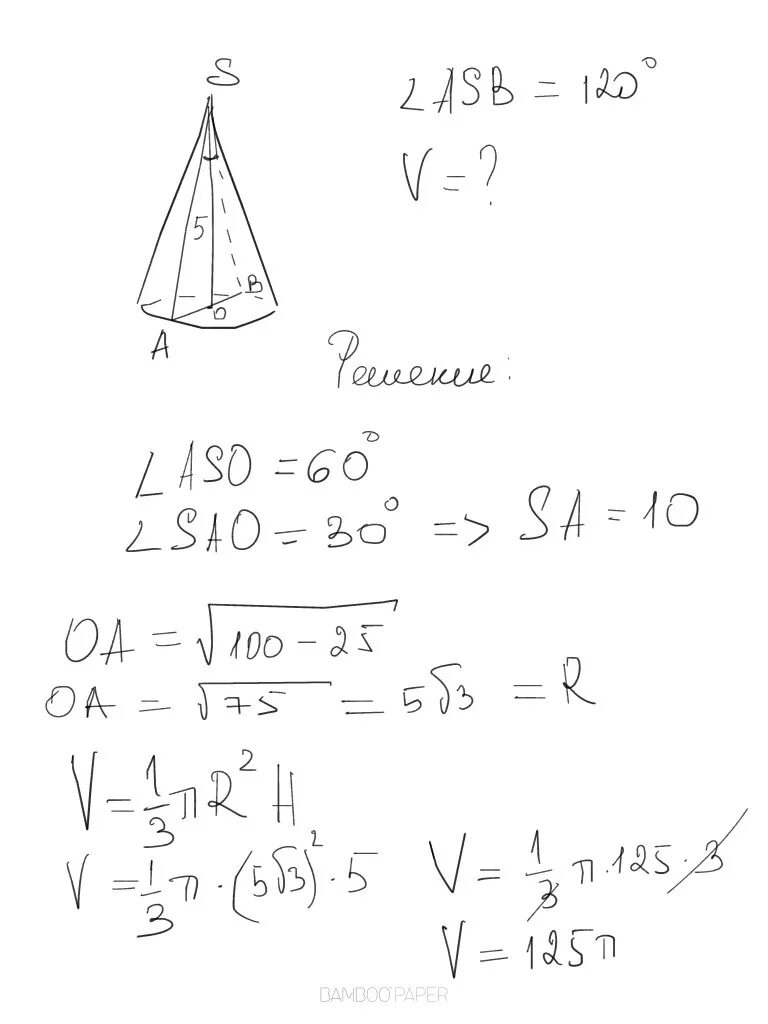 S
∠ASB = 120°
V = ?
5
B
O
A
Решение:
∠ASO = 60°
∠SAO = 30° => SA = 10
OA = √100 - 25
OA = √75 = 5√3 = R
V = 1/3 π R² H
V = 1/3 π · (5√3)² · 5
V = 1/3 π · 125 · 3
V = 125π
BAMBOO PAPER